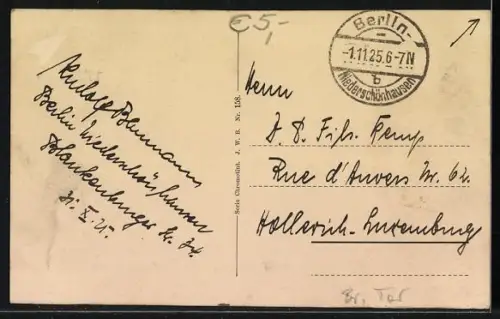 €5,-
Berlin-
-1.11.25.6-7N
b
Niederschönhausen
Rudolf Baumann
Berlin Niederschönhausen
Blankenburger Str.
31. X. 25.
Serie Chromolint. J. W. B. Nr. 158.
Herrn
J. P. Fils. Kemp
Rue d'Anvers Nr. 62.
Hollerich-Luxemburg
Br. Tor